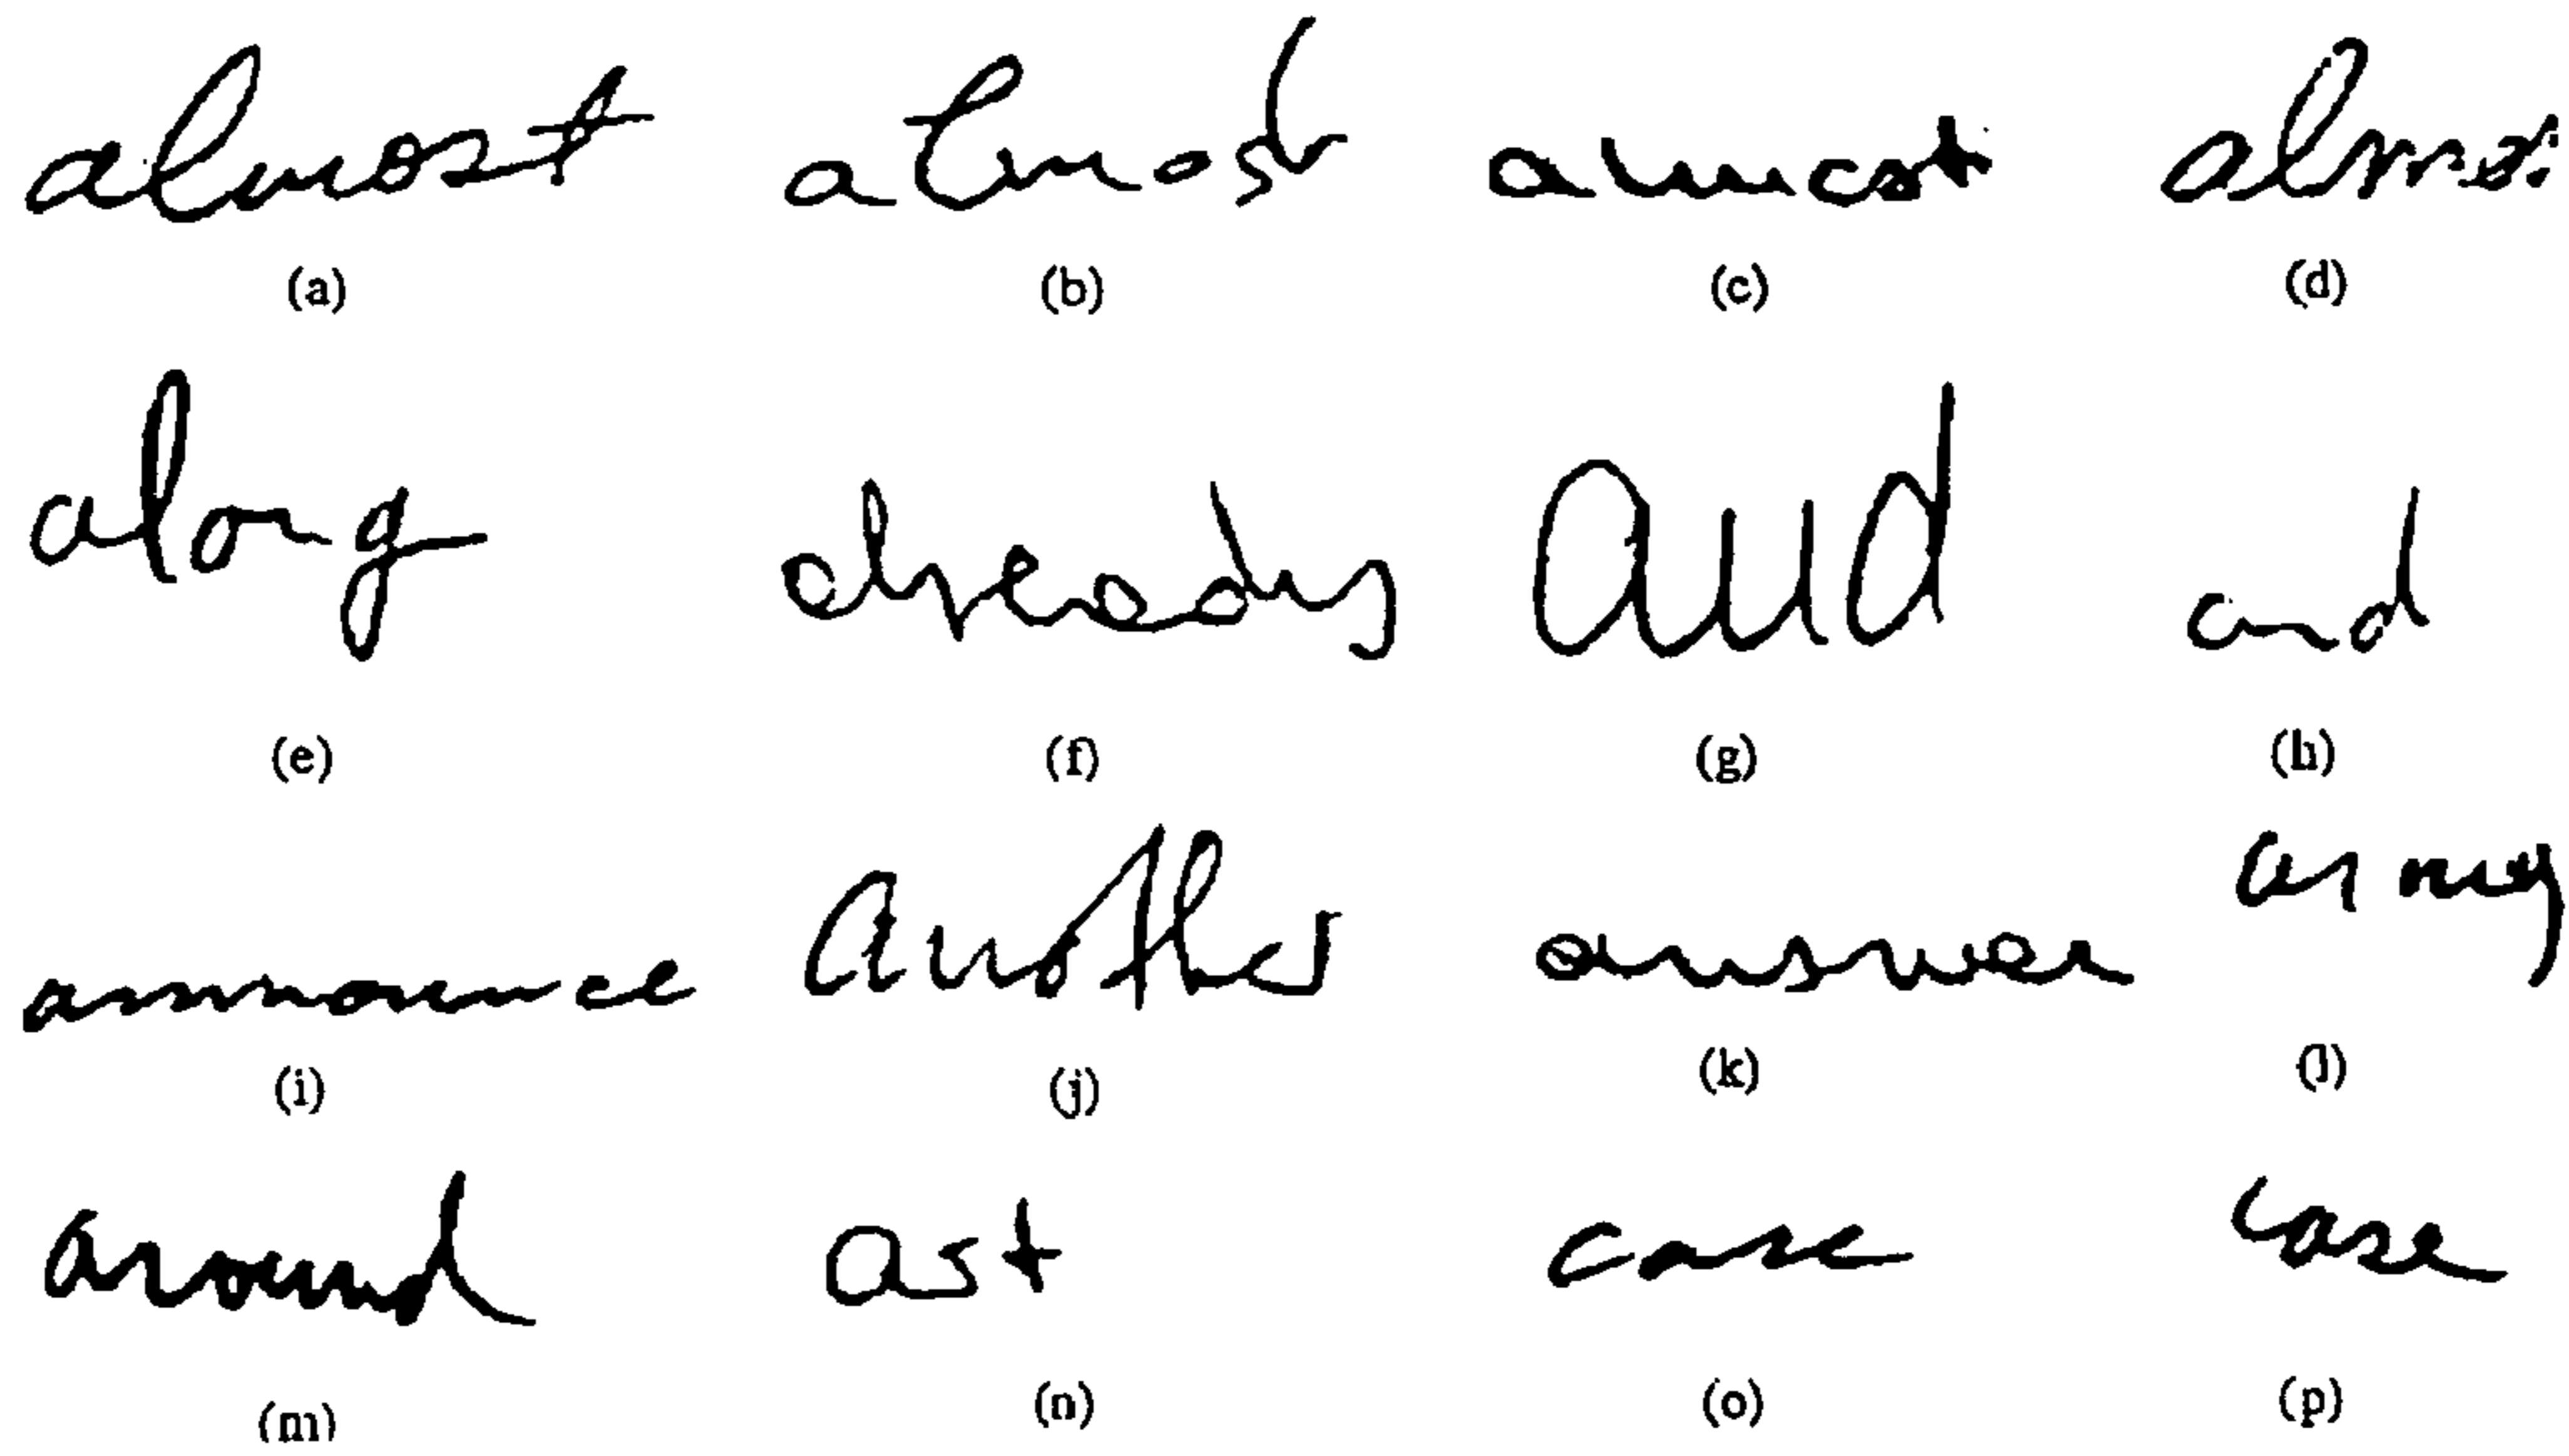 almost almost almost almo
(a) (b) (c) (d)
along already and and
(e) (f) (g) (h)
announce another answer army
(i) (j) (k) (l)
around ast case case
(m) (n) (o) (p)